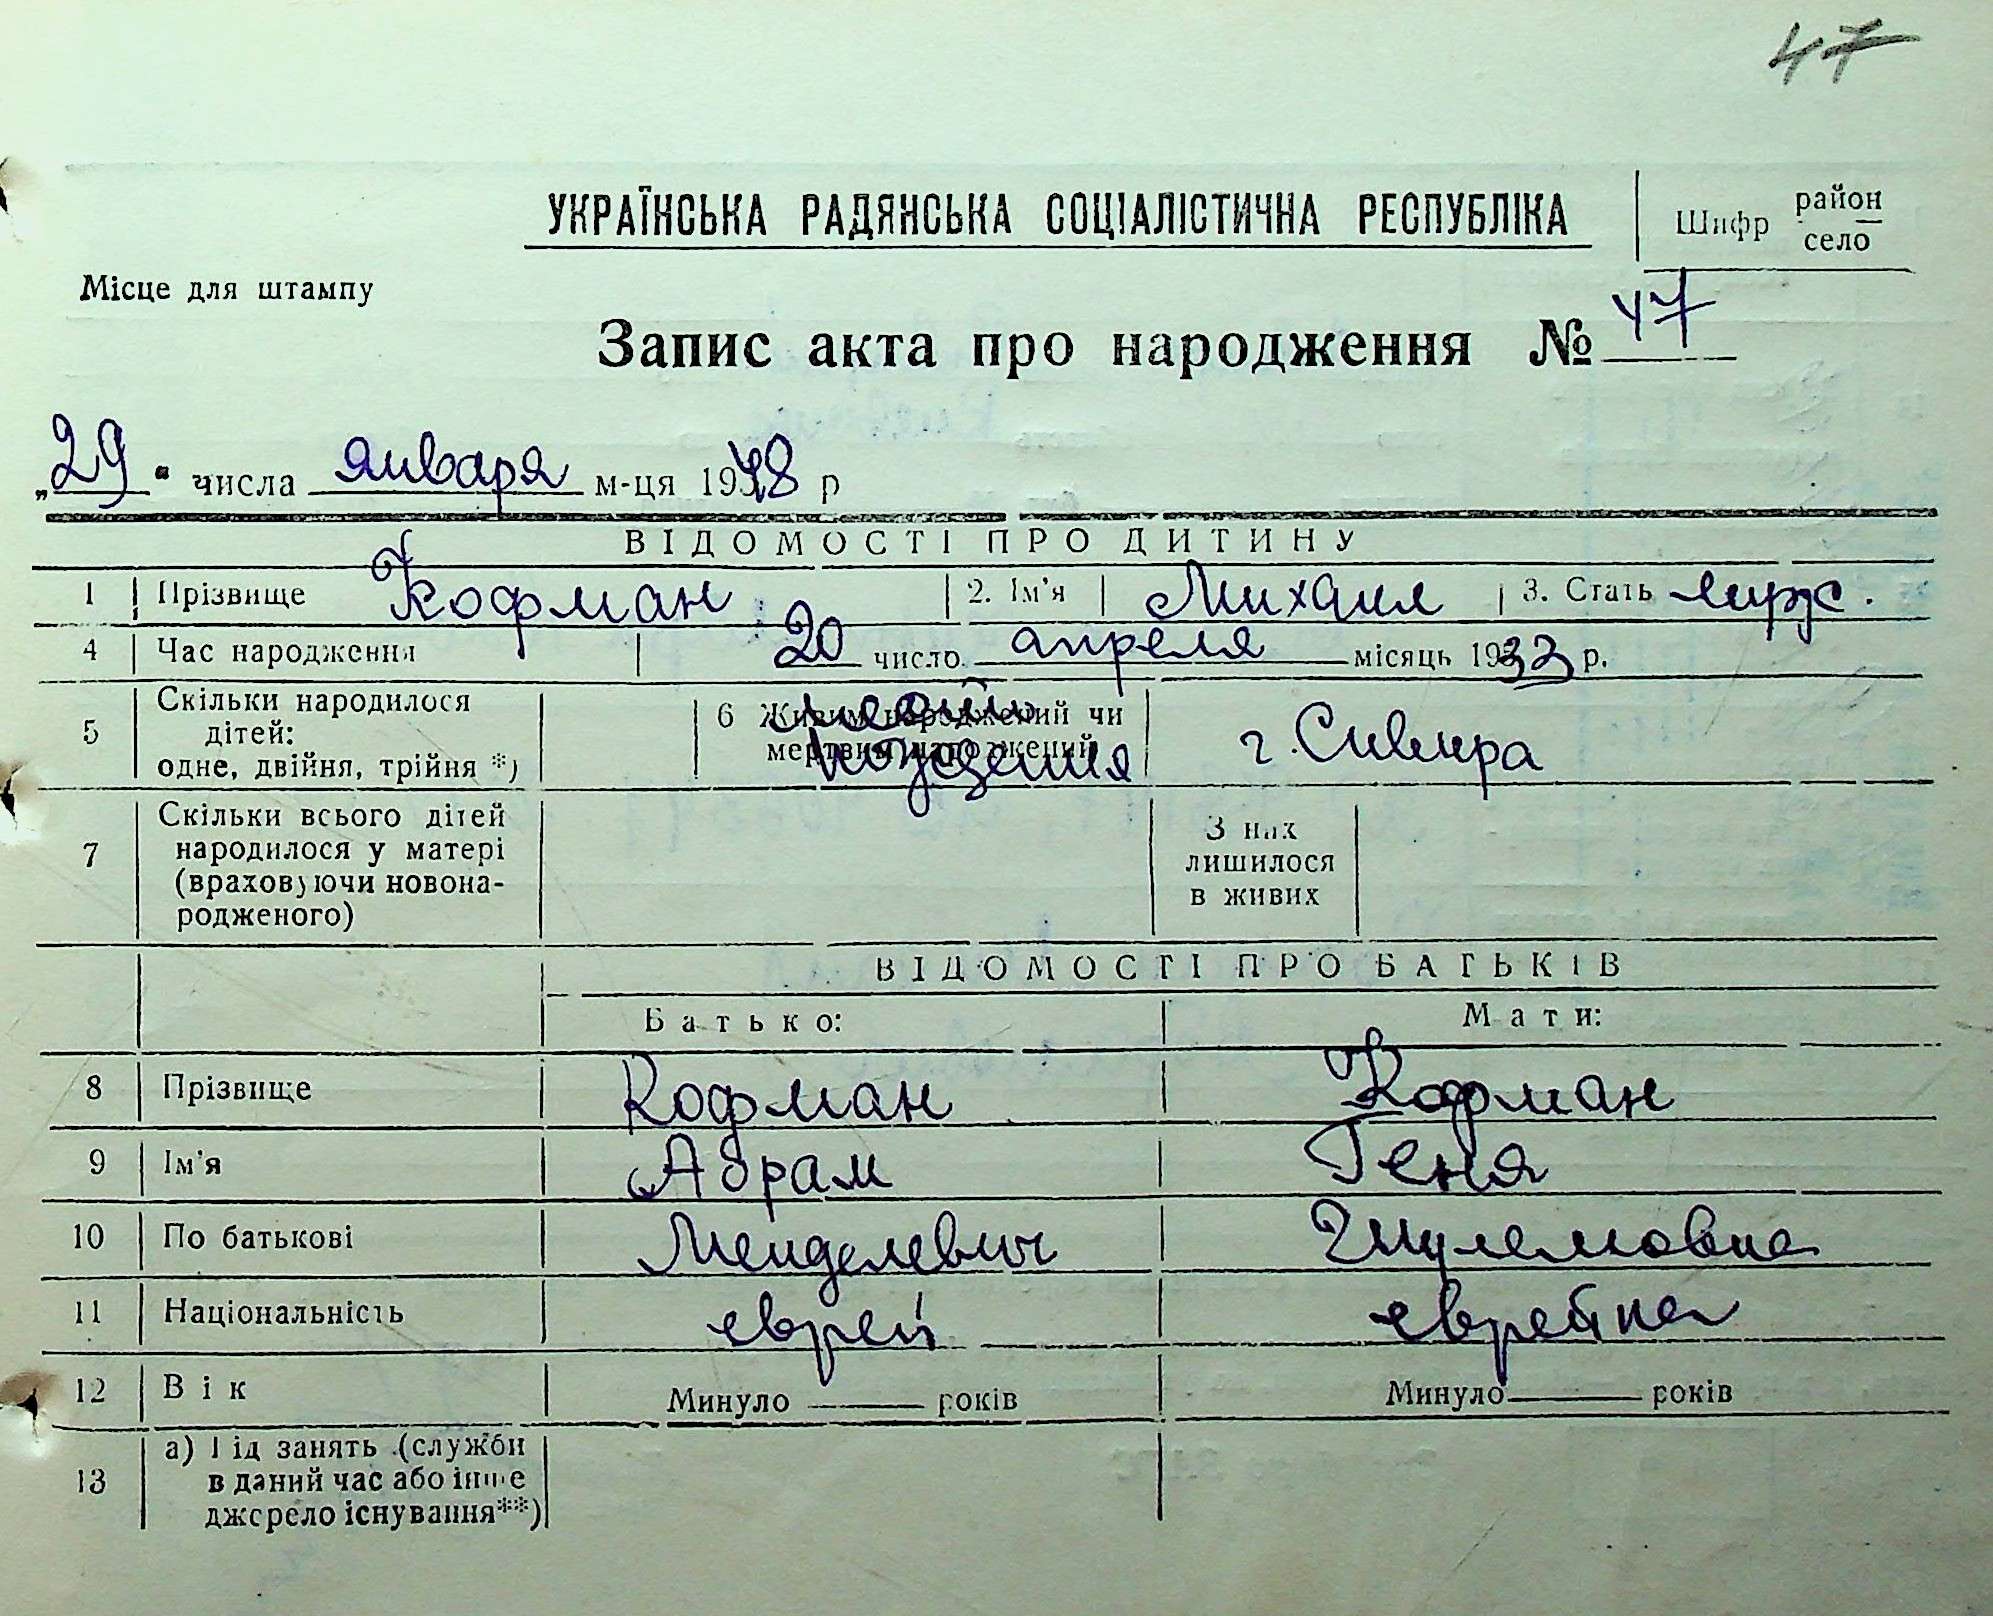 47
УКРАЇНСЬКА РАДЯНСЬКА СОЦІАЛІСТИЧНА РЕСПУБЛІКА
Шифр район село
Місце для штампу
Запис акта про народження № 47
„29“ числа января м-ця 1948 р
ВІДОМОСТІ ПРО ДИТИНУ
1 Прізвище Кофман 2. Ім'я Михаил 3. Стать муж.
4 Час народження 20 число апреля місяць 1933 р.
5 Скільки народилося дітей: одне, двійня, трійня *)
6 Живим народжений чи мертвим народжений
место рождения г. Сивира
7 Скільки всього дітей народилося у матері (враховуючи новонародженого)
З них лишилося в живих
ВІДОМОСТІ ПРО БАТЬКІВ
Батько: Мати:
8 Прізвище Кофман Кофман
9 Ім'я Абрам Геня
10 По батькові Менделевич Шулемовна
11 Національність еврей еврейка
12 Вік Минуло років Минуло років
13 а) Під занять (служби
в даний час або інше
джерело існування**)